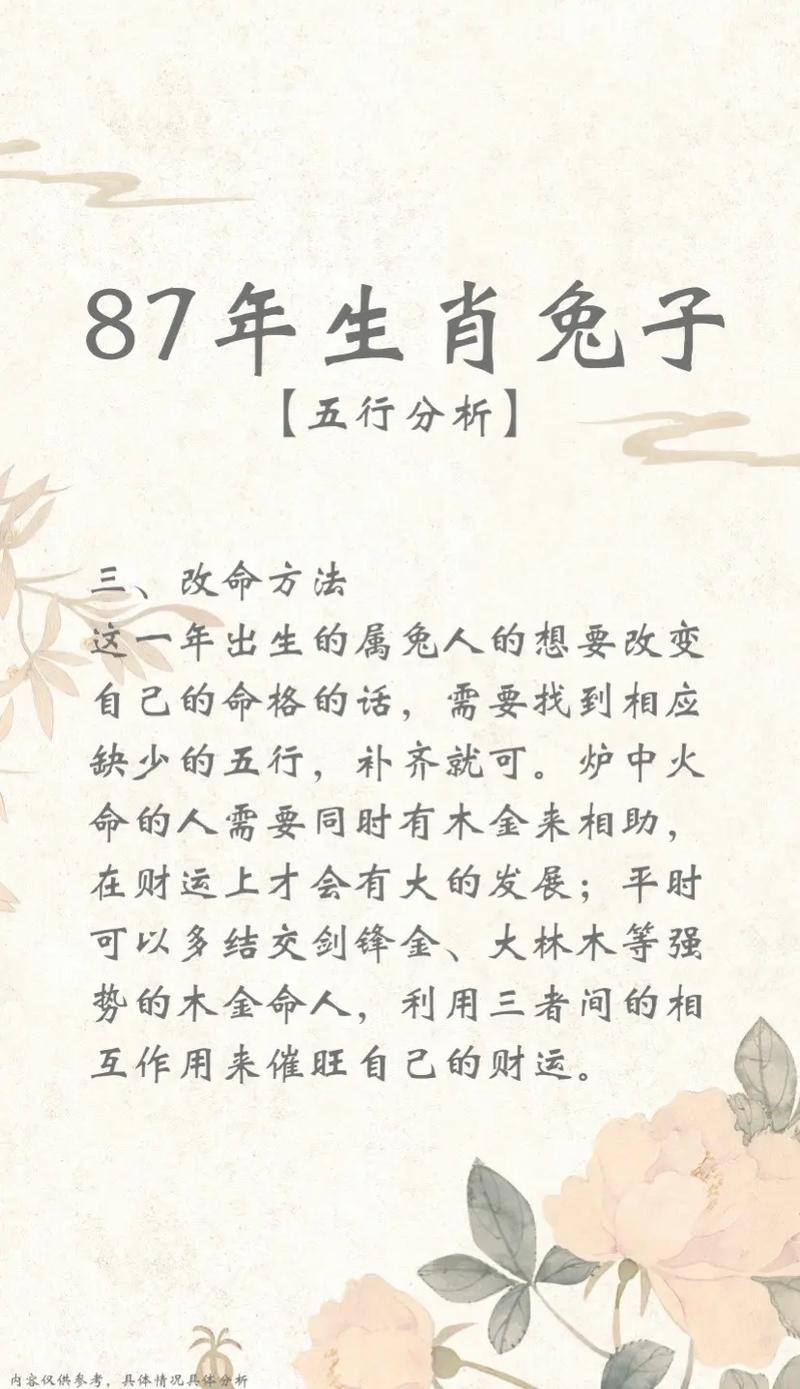 87年生肖兔子
【五行分析】
三、改命方法
这一年出生的属兔人的想要改变
自己的命格的话，需要找到相应
缺少的五行，补齐就可。炉中火
命的人需要同时有木金来相助，
在财运上才会有大的发展；平时
可以多结交剑锋金、大林木等强
势的木金命人，利用三者间的相
互作用来催旺自己的财运。
内容仅供参考，具体情况具体分析